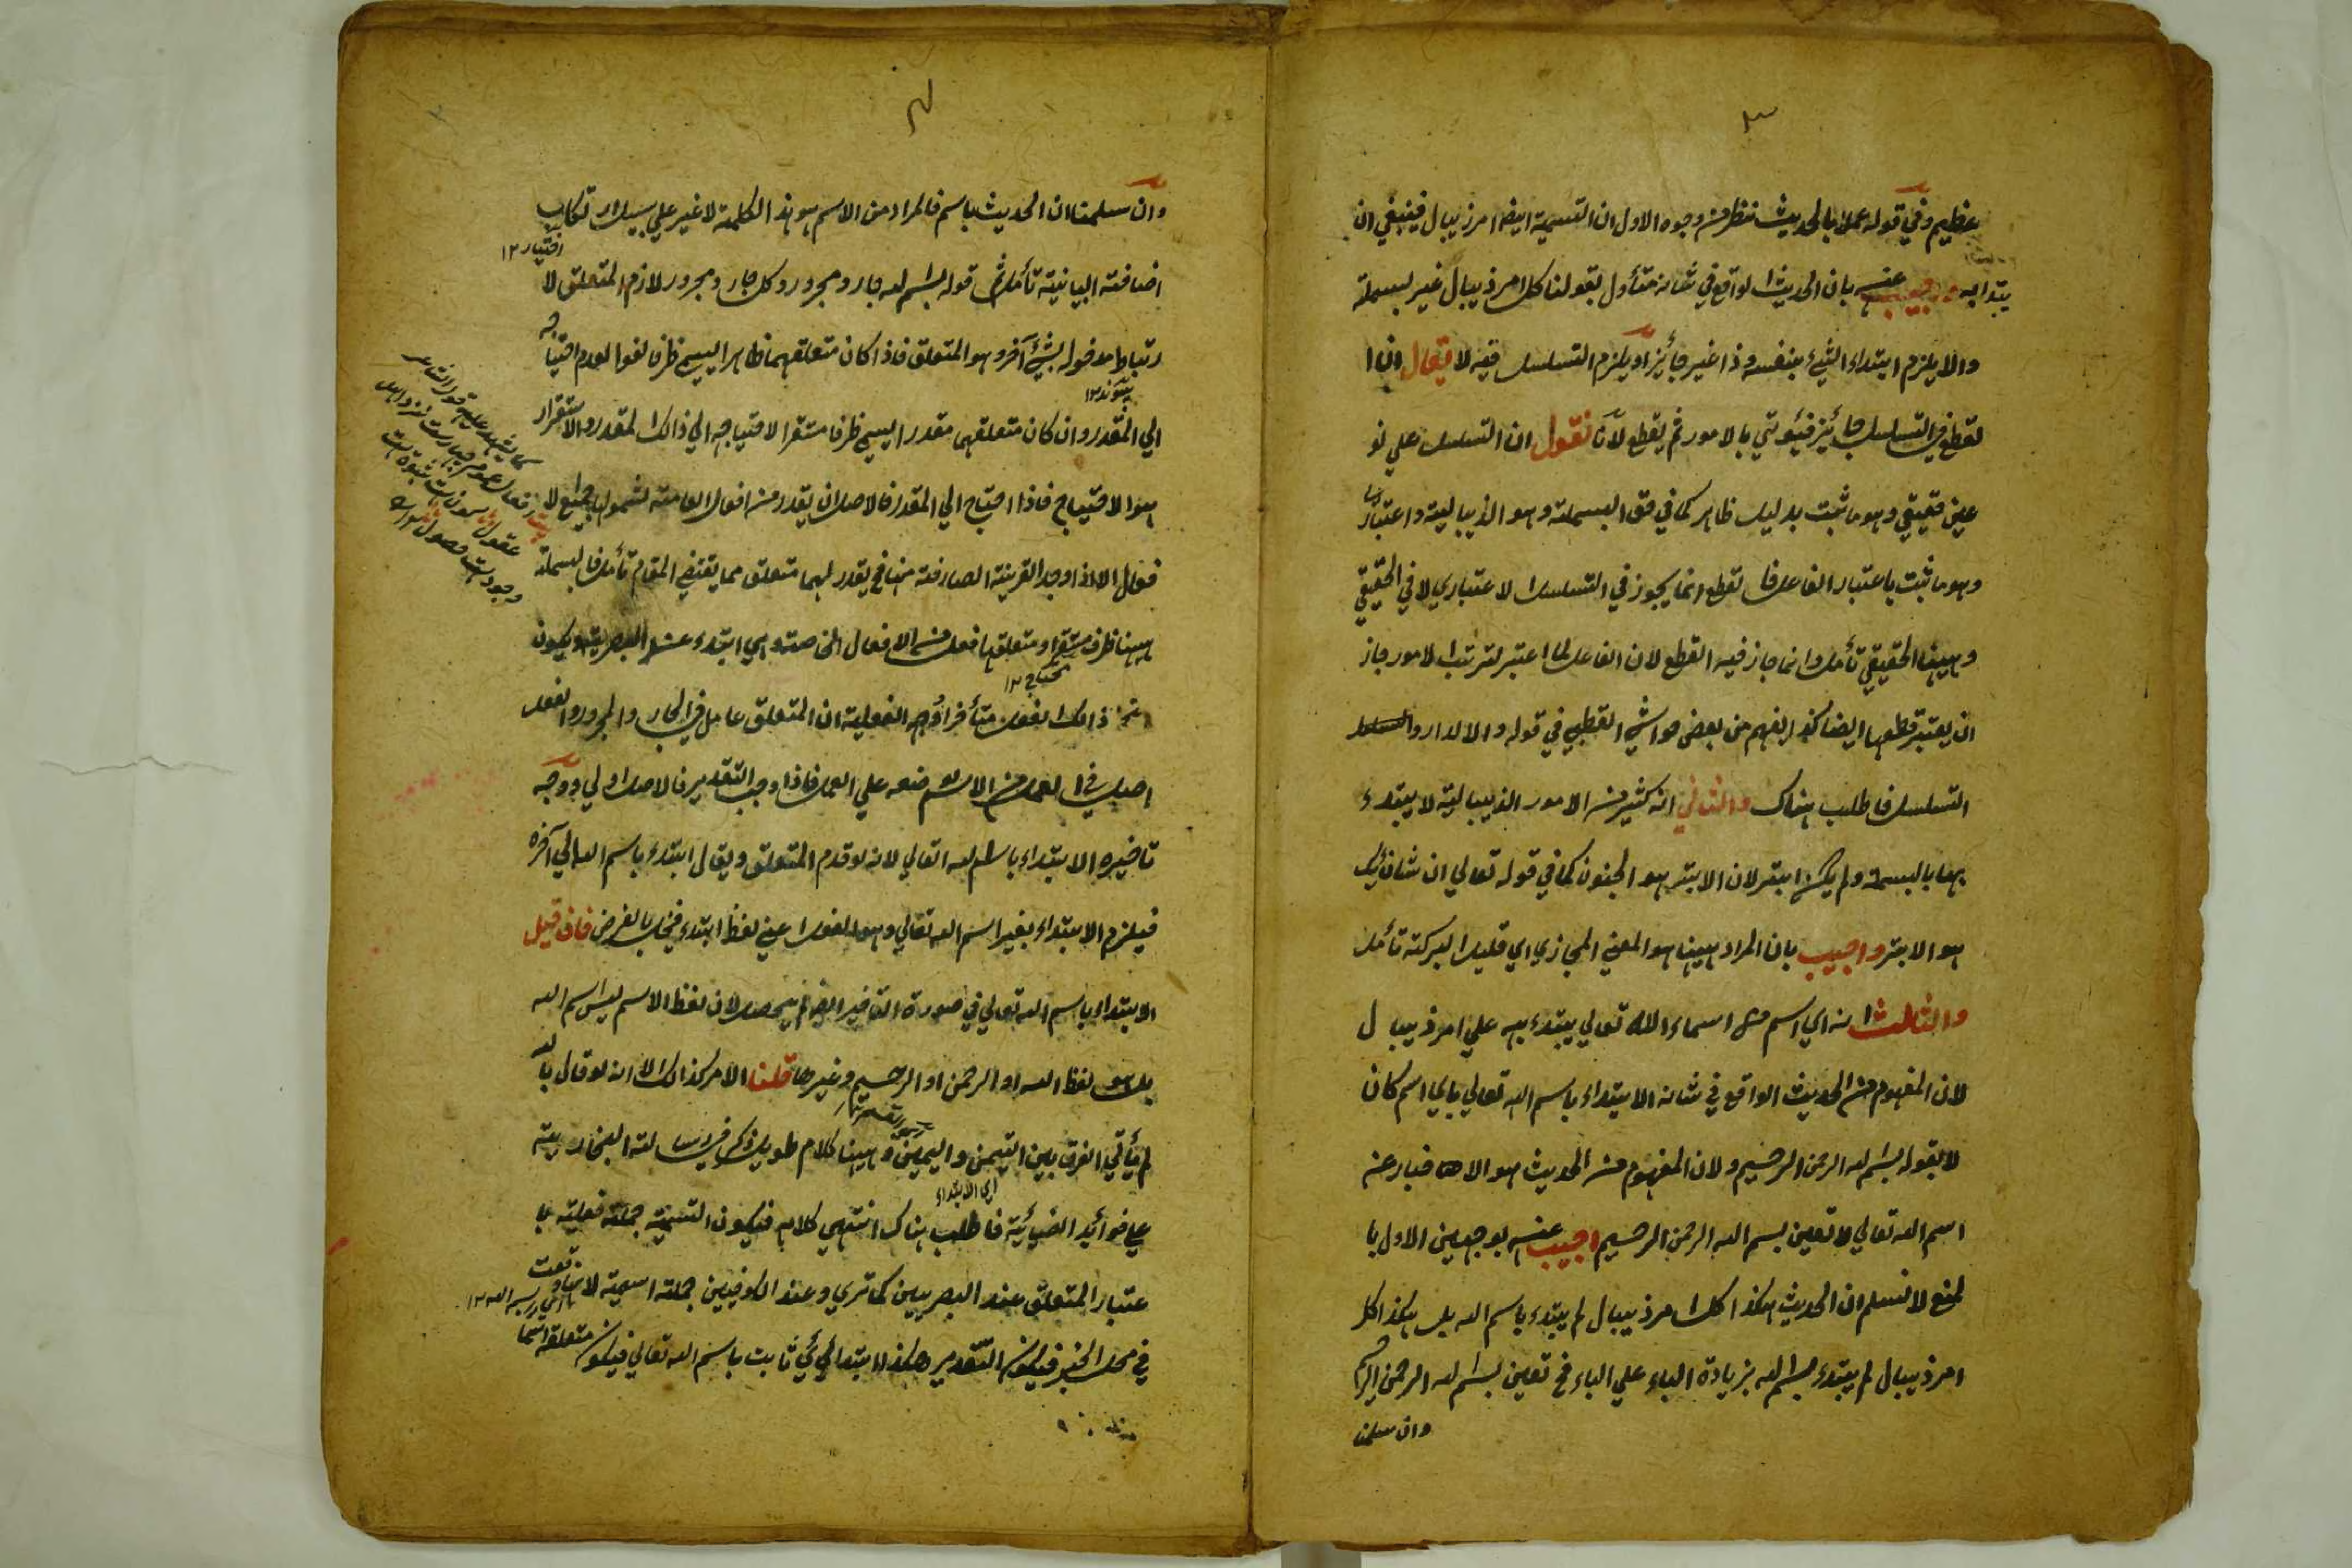 ٣
عظيم وفي قوله عملا بالحديث نظر من وجوه الاول ان التسمية ايضا امر ذيبال فينبغي ان
يبتدا به اجيب عنه بان الحديث الواقع في شانه متأول بقولنا كل امر ذيبال غير بسملة
والا يلزم ابتداء الشيء بنفسه وذا غير جائز او يلزم التسلسل فيه لا يقال ان ا
لقطع في التسلسل جائز فيؤتي بالامور ثم يقطع لانا نقول ان التسلسل علي نو
عين حقيقي وهو ما ثبت بدليل ظاهر كما في حق البسملة وهو الذيبالية واعتباري
وهو ما ثبت باعتبار الفاعل فا لقطع انما يجوز في التسلسل الاعتباري لا في الحقيقي
وههنا الحقيقي تأمل وانما جاز فيه القطع لان الفاعل لما اعتبر لترتب الامور جاز
ان يعتبر قطعها ايضا كذا يفهم من بعض حواشي القطبي في قوله والا لدار و
التسلسل فاطلب هناك والثاني انه كثير من الامور الذيبالية لا يبتدء
بها بالبسمة ولم يكن ابتر لان الابتر هو الجنون كما في قوله تعالي ان شانئك
هو الابتر واجيب بان المراد ههنا هو المعني المجازي اي قليل البركة تأمل
والثالث انه اي اسم من اسماء الله تعالي يبتدء به علي امر ذيبال
لان المفهوم من الحديث الواقع في شانه الابتداء باسم الله تعالي باي اسم كان
لا بقوله بسم الله الرحمن الرحيم ولان المفهوم من الحديث هو الاخبار عن
اسم الله تعالي لا تعين بسم الله الرحمن الرحيم اجيب عنه بوجهين الاول با
لمنع لا نسلم ان الحديث هكذا كل امر ذيبال لم يبتدء باسم الله بل هكذا كل
امر ذيبال لم يبتدء ببسم الله بزيادة الباء علي الباء فح تعين بسم الله الرحمن الرحيم
وان سلمنا
٤
وان سلمنا ان الحديث باسم فالمراد من الاسم هو هذا الكلمة لا غير علي سبيل ارتكاب
اختيار ١٢
اضافته البيانية تأمل ثم قوله بسم الله جار ومجرور وكل جار ومجرور لازم المتعلق لا
رتباط مدخوله بشيء آخر وهو المتعلق فاذا كان متعلقهما ظاهرا يسمي ظرفا لغوا لعدم احتياجه
الي المقدر وان كان متعلقهما مقدرا يسمي ظرفا مستقرا لاحتياجه الي ذالك المقدر والاستقرار
هو الاحتياج فاذا احتاج الي المقدر فالاصل ان يقدر من افعال العامة لشمولها جميع الا
فعال الا اذا وجد القرينة الصارفة منها فح يقدر لهما متعلق مما يقتضي المقام تأمل فا لبسملة
ههنا ظرف مستقر ومتعلقها فعل من الافعال الخاصة وهي ابتدء عند البصرية ويكون
محتاج ١٢
ذالك الفعل متأخرا وجه الفعلية ان المتعلق عامل في الجار والمجرور والفعل
اصل في العمل من الاسم ضعه علي العمل فاذا وجب التقدير فالاصل اولي ووجه
تاخيره الابتداء باسم الله تعالي لانه لو قدم المتعلق ويقال ابتدء باسم الله الي آخره
فيلزم الابتداء بغير اسم الله تعالي وهو الفعل اعني لفظ ابتدء فيخل بالغرض فان قيل
الابتداء باسم الله تعالي في صورة التاخير ايضا لم يحصل لان لفظ الاسم ليس اسم الله
بل هو لفظ الله او الرحمن او الرحيم وغيرها قلنا الامر كذالك الا انه لو قال بالله
لم يتأتي الفرق بين التيمن واليمين وههنا كلام طويل ذكر في رسالة البخارية
اي الابتداء
علي فوائد الضيائية فاطلب هناك انتهي كلامه فيكون التسمية جملة فعلية با
عتبار المتعلق عند البصريين كما تري وعند الكوفيين جملة اسمية لانها وقعت
اي بسم الله ١٢
في محل الخبر فيكون التقدير هكذا ابتدائي ثابت باسم الله تعالي فيكون متعلقه اسما